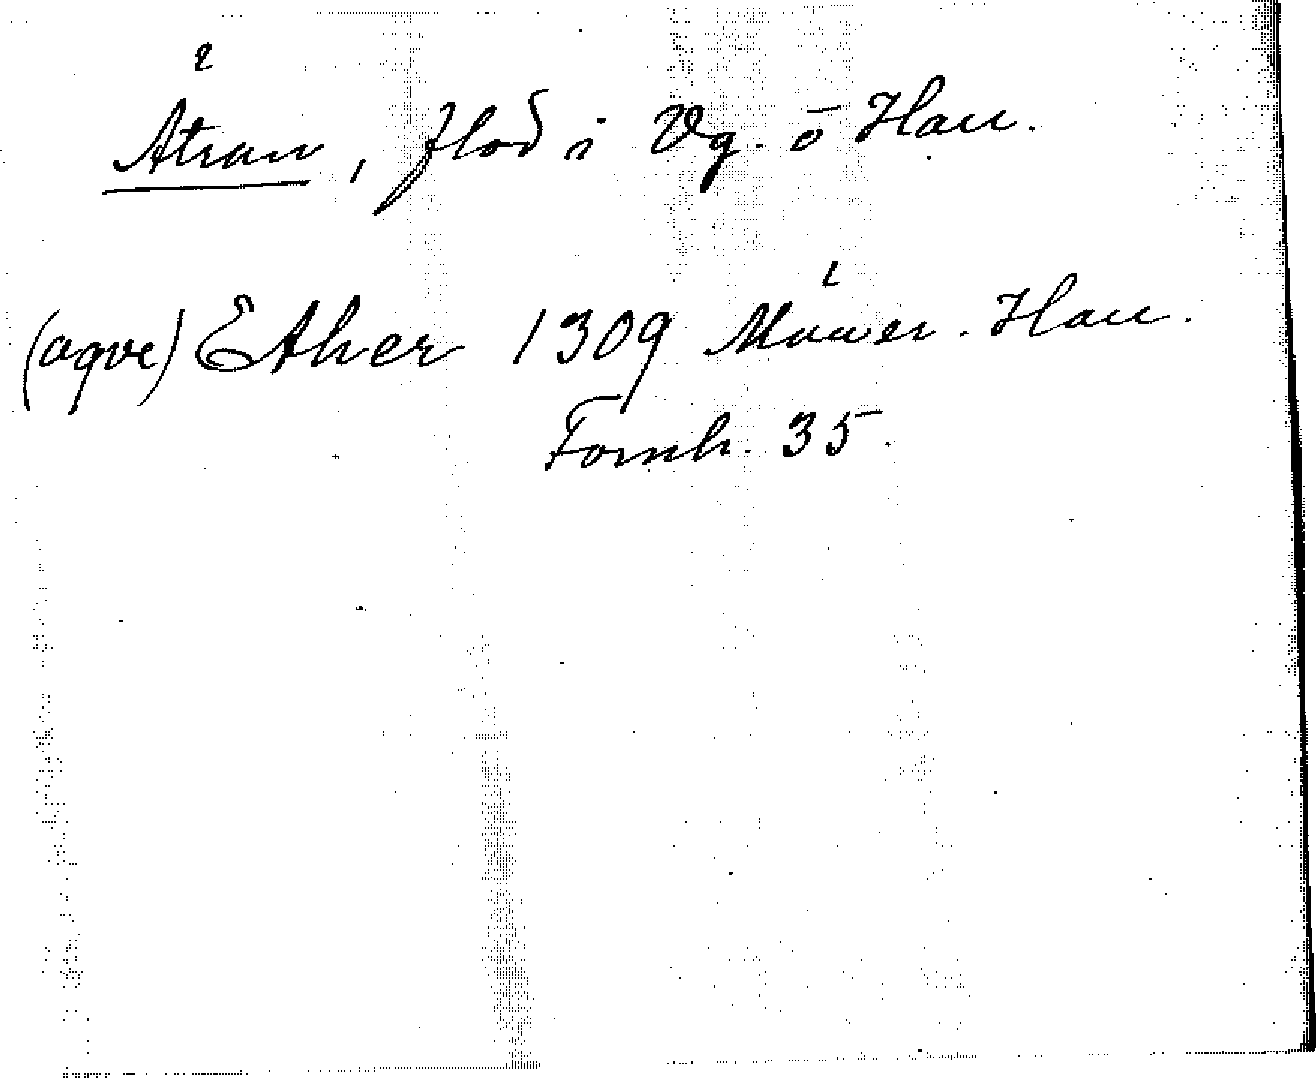 Ätran, flod i Vg. o Hall.
(aqve) Ether 1309
Fornh. 35.